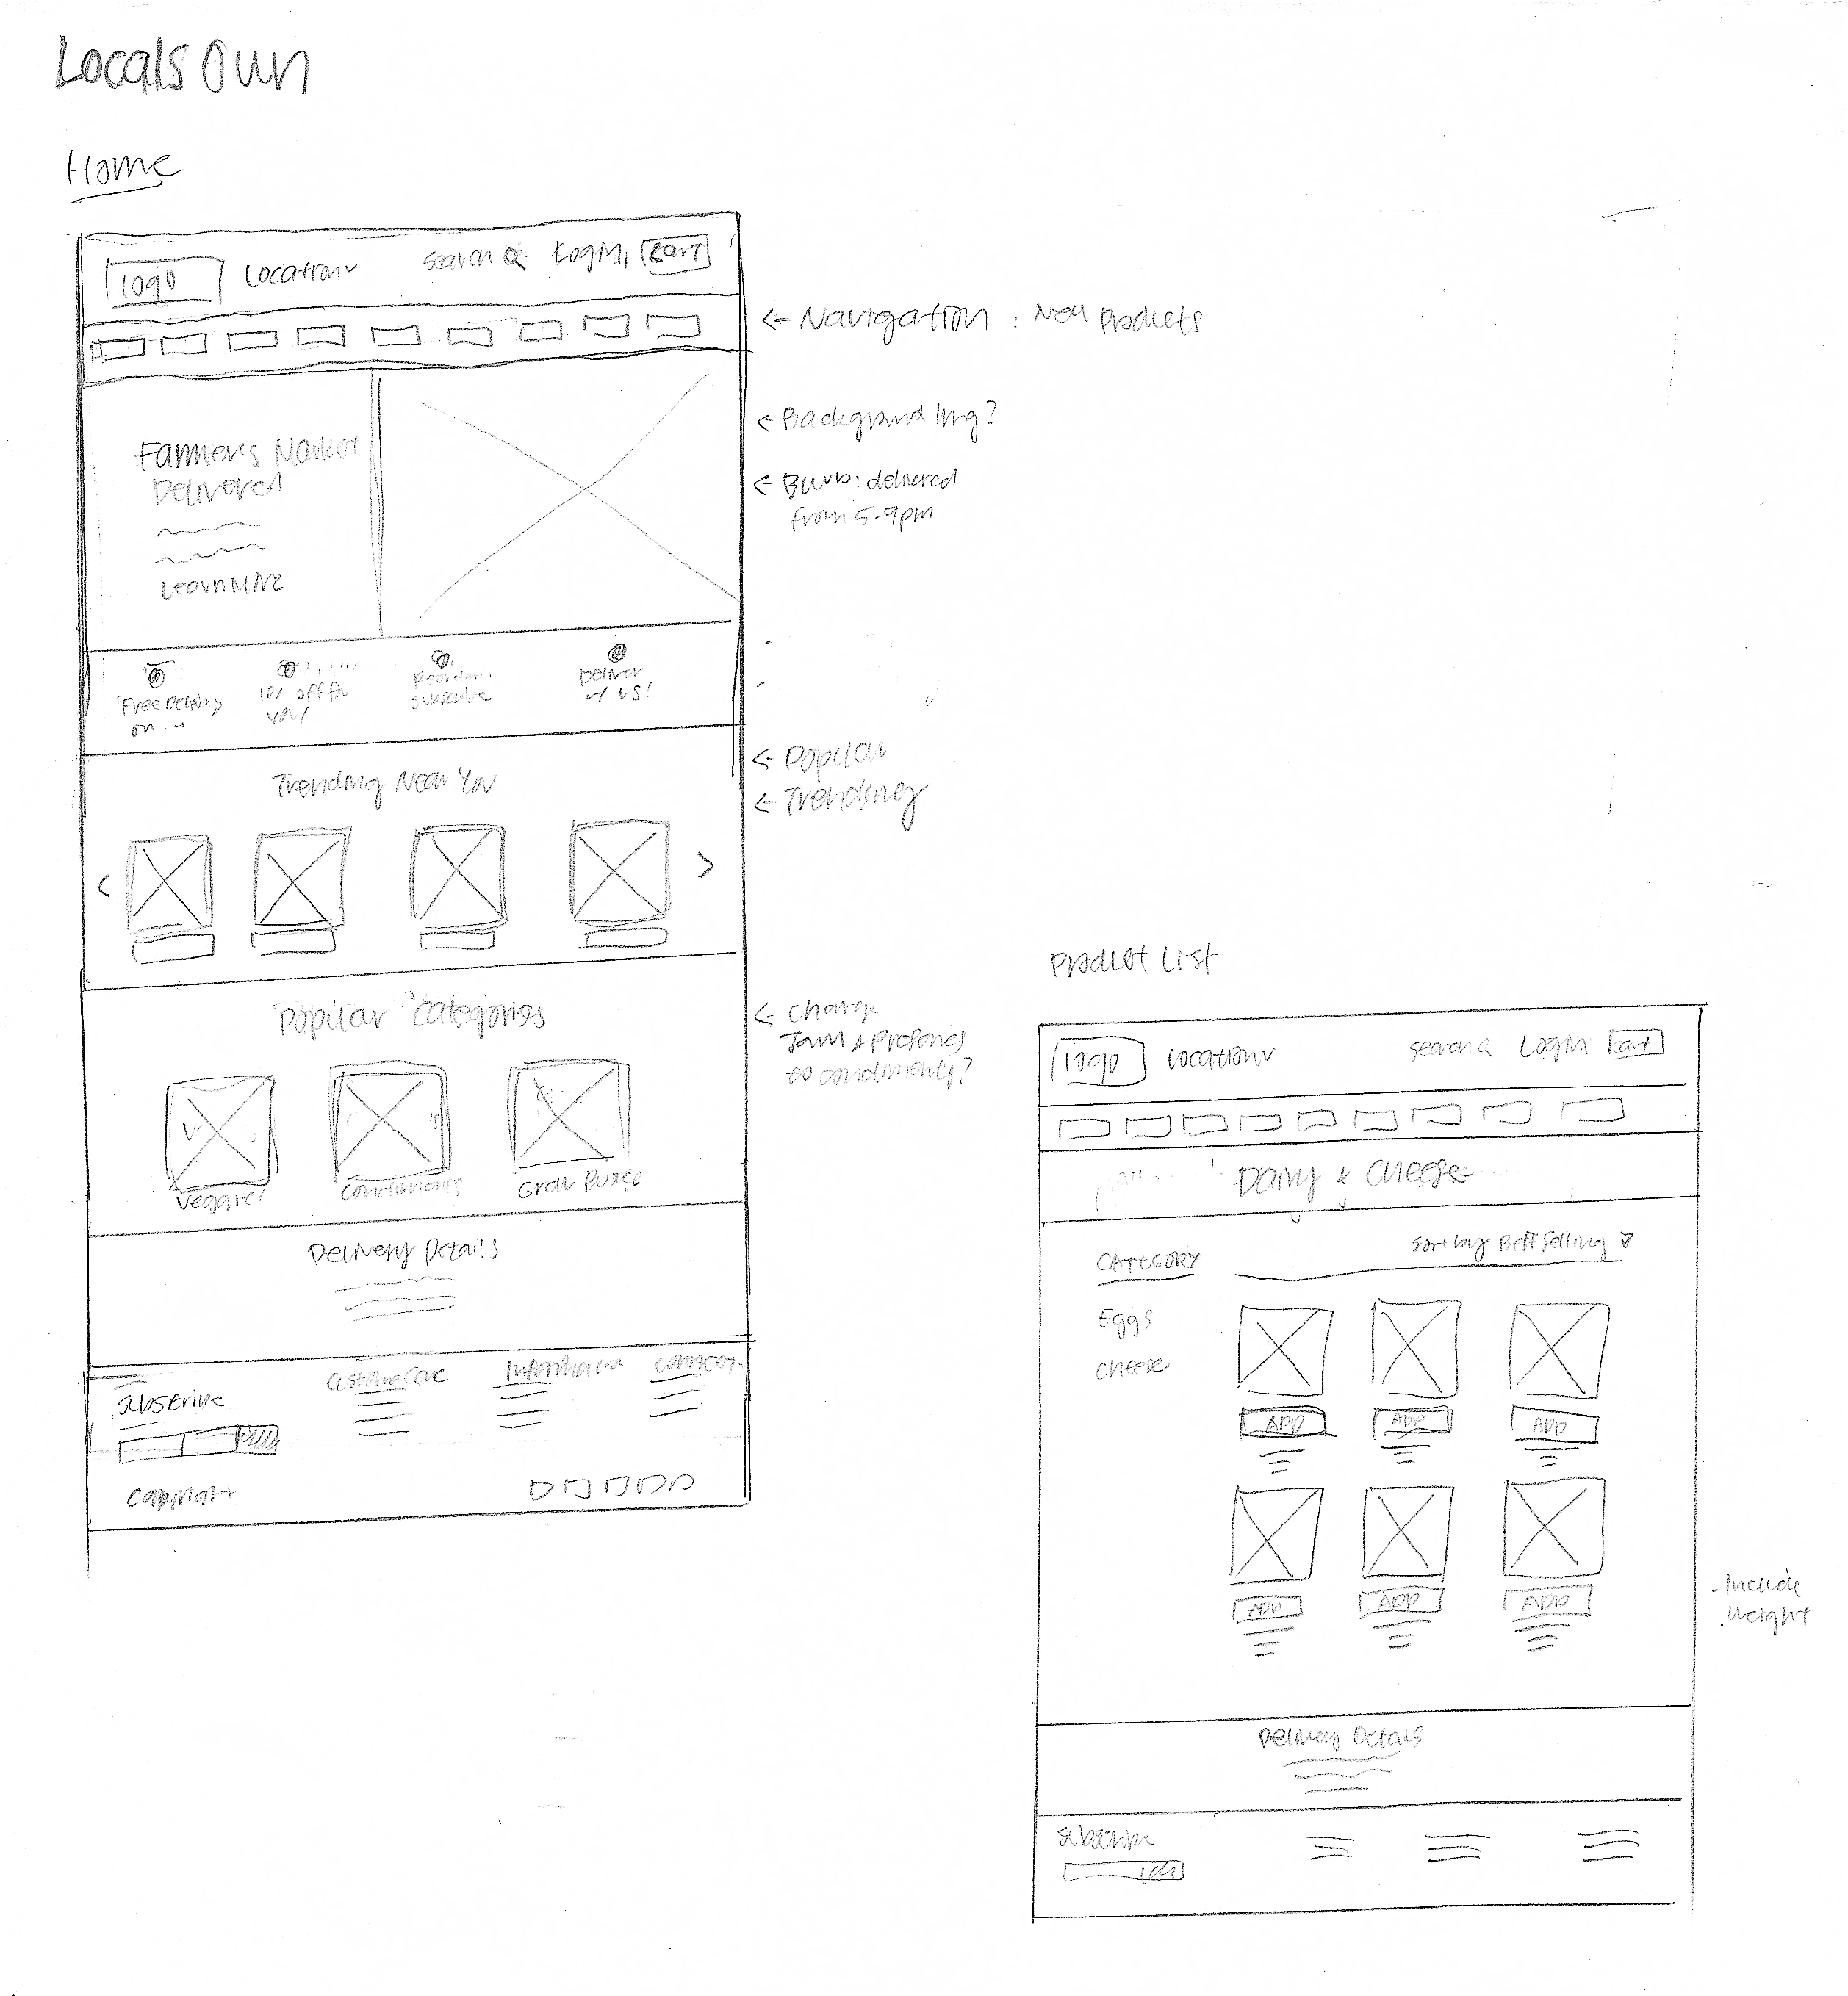 Locals Own
Home
Logo Location Search Login Cart
← Navigation : New Products
Farmers Market
Delivered
Learn More
← Background Img?
← Blurb: delivered
from 5-9pm
Free Delivery
on...
10% off for
you!
Reorder..
Subscribe
Deliver
w/ us!
Trending Near You
← Popular
← Trending
< >
Popular Categories
← Change
Jam &
to condiments?
Veggies Condiments
Delivery Details
Subscribe
Customer Care
Information
Connect
Copyright
Product List
Logo Location Search Login Cart
Dairy & Cheese
CATEGORY
Sort by Best Selling
Eggs
Cheese
ADD ADD ADD
ADD ADD ADD
- Include
. Weight
Delivery Details
Subscribe